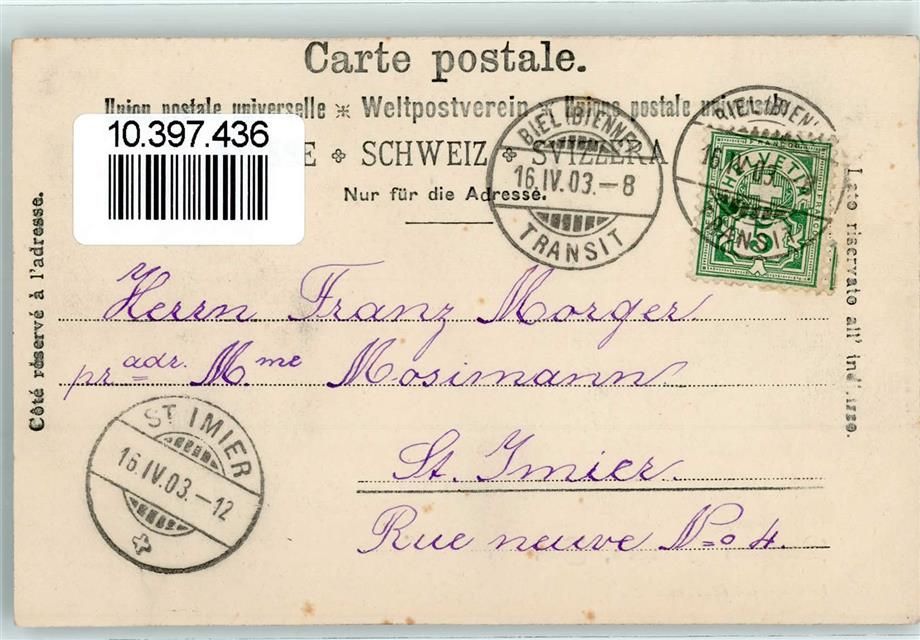 Carte postale.
Union postale universelle ✻ Weltpostverein ✻ Unione postale universale
SCHWEIZ ✤ SVIZZERA
Nur für die Adresse.
10.397.436
Côté réservé à l'adresse.
Lato riservato all' indirizzo.
BIEL (BIENNE)
16.IV.03.–8
TRANSIT
BIEL (BIENNE)
16.IV.03
TRANSIT
HELVETIA
5
Herrn Franz Morger
pr adr. Mme Mosimann
St. Imier.
Rue neuve No 4.
ST IMIER
16.IV.03.–12